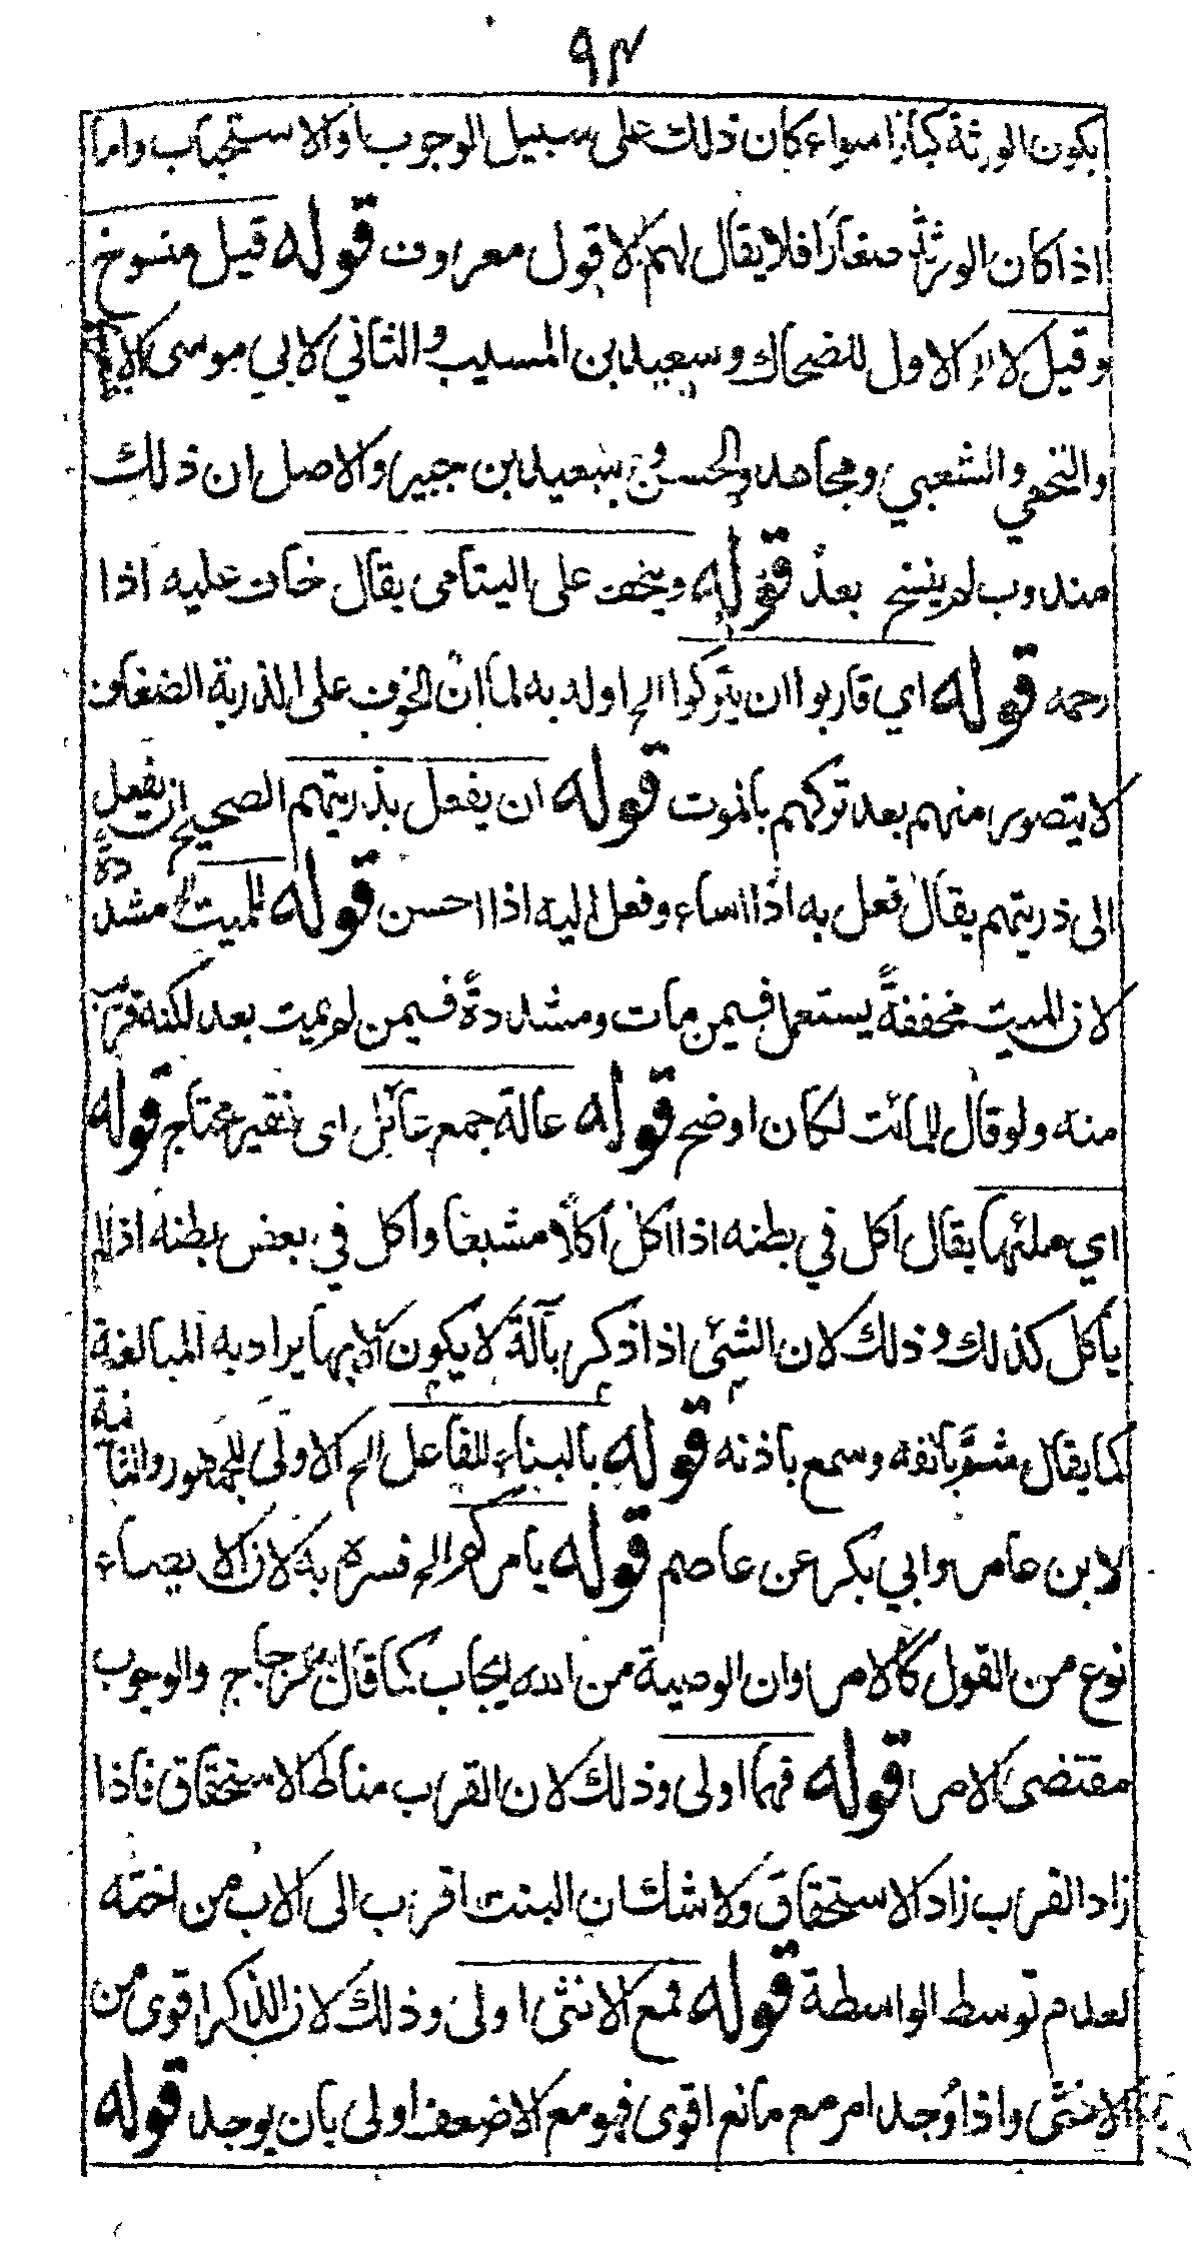 ٩٣
يكون الورثة كبارا سواء كان ذلك على سبيل الوجوب او الاستحباب واما
اذا كان الورثة صغارا فلا يقال لهم الا قول معروف قوله قيل منسوخ
وقيل لا الاول للضحاك وسعيد بن المسيب والثاني لابي موسى
والنخعي والشعبي ومجاهد والحسن وسعيد بن جبير والاصل ان ذلك
مندوب لم ينسخ بعد قوله وليخف على اليتامى يقال خاف عليه اذا
رحمه قوله اي قاربوا ان يتركوا الخ اوله به لما ان الخوف على الذرية الضعاف
لا يتصور منهم بعد تركهم بالموت قوله ان يفعل بذريتهم الصحيح ان يفعل
الى ذريتهم يقال فعل به اذا اساء وفعل اليه اذا احسن قوله الميت الخ مشددة
لان الميت مخففة يستعمل فيمن مات ومشددة فيمن لم يمت بعد لكنه قرب
منه ولو قال المائت لكان اوضح قوله عالة جمع عائل اى فقير محتاج قوله
اي ملئها يقال اكل في بطنه اذا اكل اكلا مشبعا واكل في بعض بطنه اذا لم
يأكل كذلك وذلك لان الشئ اذا ذكر بآلة لا يكون الا بها يراد به المبالغة
كما يقال شم بانفه وسمع باذنه قوله بالبناء للفاعل الخ الاولى للجمهور والثانية
لابن عامر وابي بكر عن عاصم قوله يامركم الخ فسره به لان الايصاء
نوع من القول كالامر وان الوصية من الله ايجاب كما قال الزجاج والوجوب
مقتضى الامر قوله فهما اولى وذلك لان القرب مناط الاستحقاق فاذا
زاد القرب زاد الاستحقاق ولا شك ان البنت اقرب الى الاب من اخته
لعدم توسط الواسطة قوله فمع الانثى اولى وذلك لان الذكر اقوى من
الانثى واذا وجد امر مع مانع اقوى فهو مع الاضعف اولى بان يوجد قوله